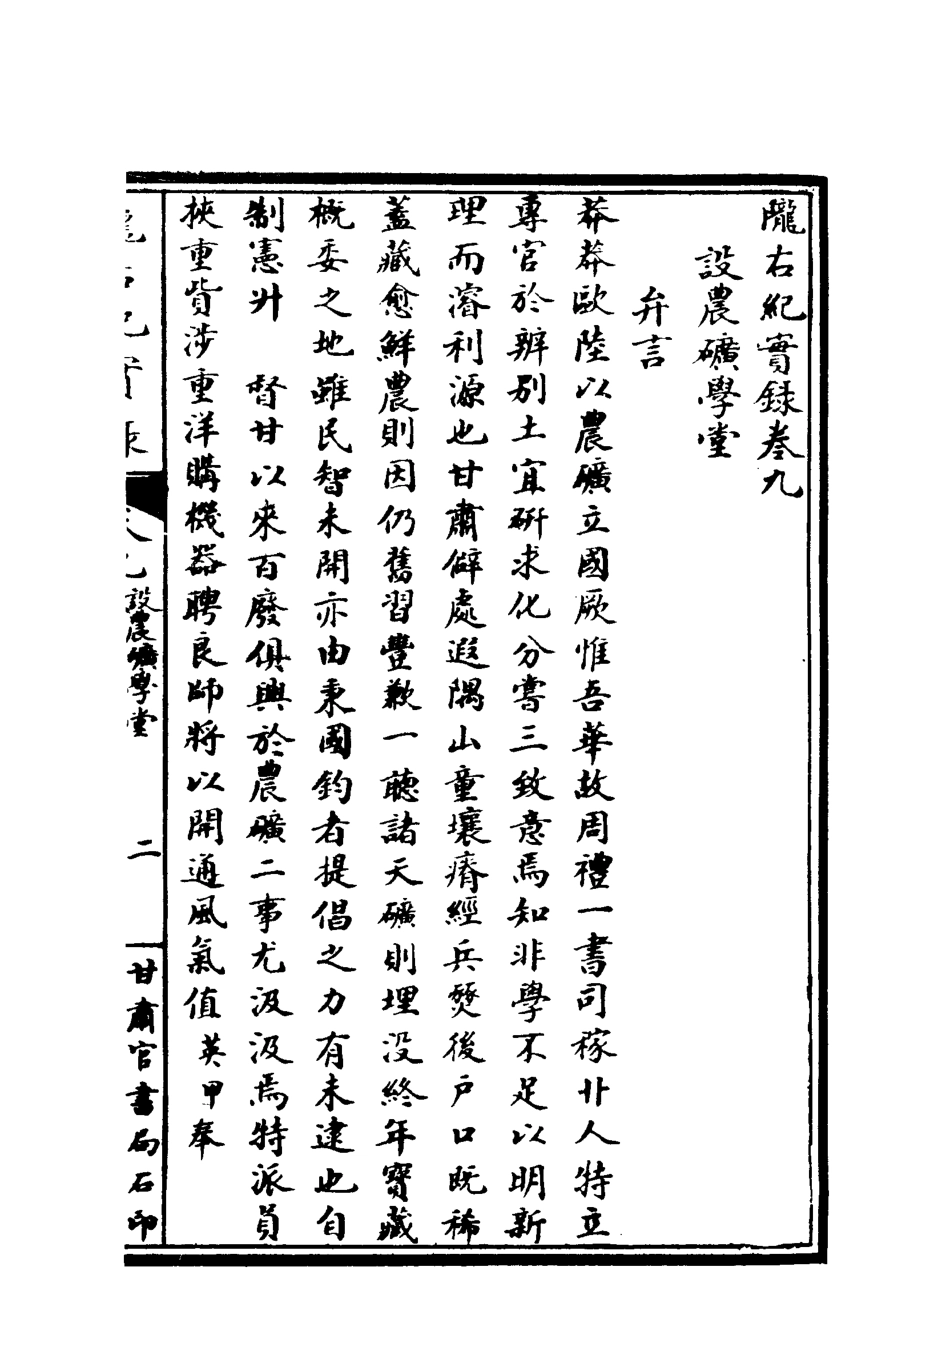 隴右紀實録卷九
設農礦學堂
弁言
莽莽歐陸以農礦立國厥惟吾華故周禮一書司稼卝人特立
專官於辨別土宜硏求化分嘗三致意焉知非學不足以明新
理而濬利源也甘肅僻處遐隅山童壤瘠經兵燹後户口既稀
蓋藏愈鮮農則因仍舊習豐歉一聽諸天礦則埋没終年寳藏
概委之地雖民智未開亦由秉國鈞者提倡之力有未逮也自
制憲升　督甘以來百廢俱興於農礦二事尤汲汲焉特派員
挾重貲涉重洋購機器聘良師將以開通風氣值英甲奉
設農礦學堂
二
甘肅官書局石印